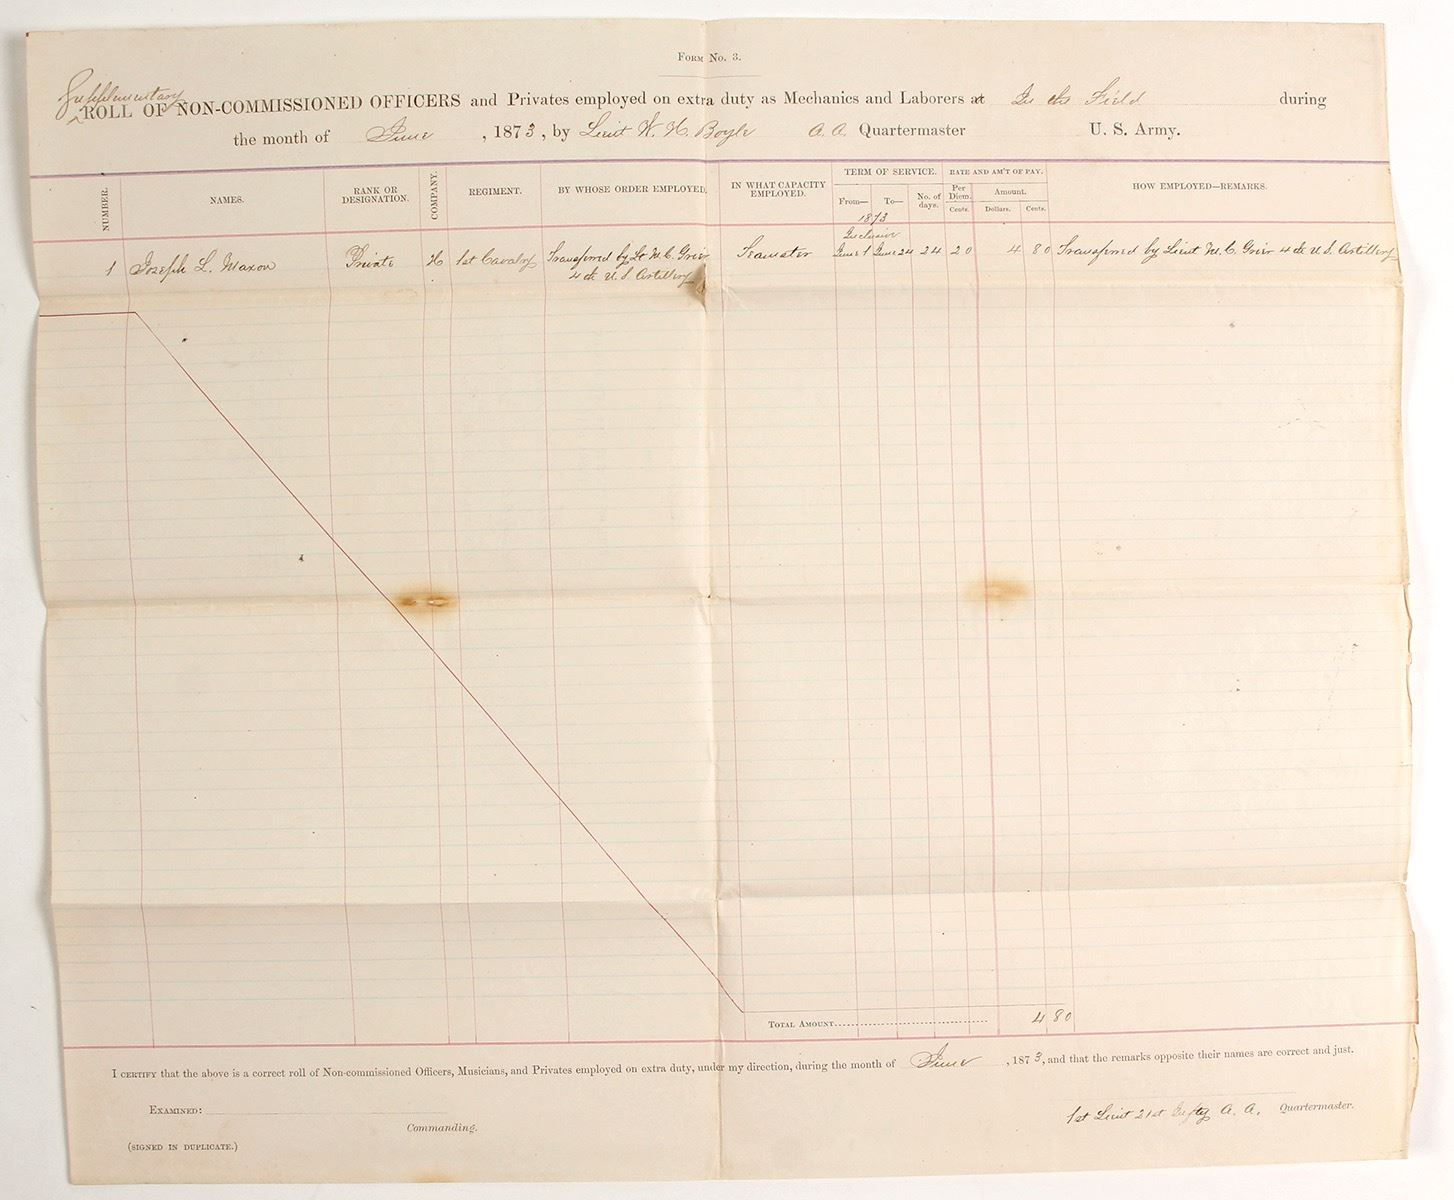 Form No. 3.
Supplementary
ROLL OF NON-COMMISSIONED OFFICERS and Privates employed on extra duty as Mechanics and Laborers at In the Field during
the month of June, 1873, by Lieut W. H. Boyle A. A. Quartermaster U. S. Army.
NUMBER. NAMES. RANK OR DESIGNATION. COMPANY. REGIMENT. BY WHOSE ORDER EMPLOYED. IN WHAT CAPACITY EMPLOYED. TERM OF SERVICE. RATE AND AM'T OF PAY. HOW EMPLOYED—REMARKS.
From— To— No. of days. Per Diem. Amount.
Cents. Dollars. Cents.
1873
Inclusive
1 Joseph L. Maxon Private H 1st Cavalry Transferred by Lt M. C. Grier Teamster June 1 June 24 24 20 4 80 Transferred by Lieut M. C. Grier 4th U.S. Artillery
4th U.S. Artillery
Total Amount 4 80
I certify that the above is a correct roll of Non-commissioned Officers, Musicians, and Privates employed on extra duty, under my direction, during the month of June, 1873, and that the remarks opposite their names are correct and just.
Examined:
1st Lieut 21st Infty A. A. Quartermaster.
Commanding.
(SIGNED IN DUPLICATE.)